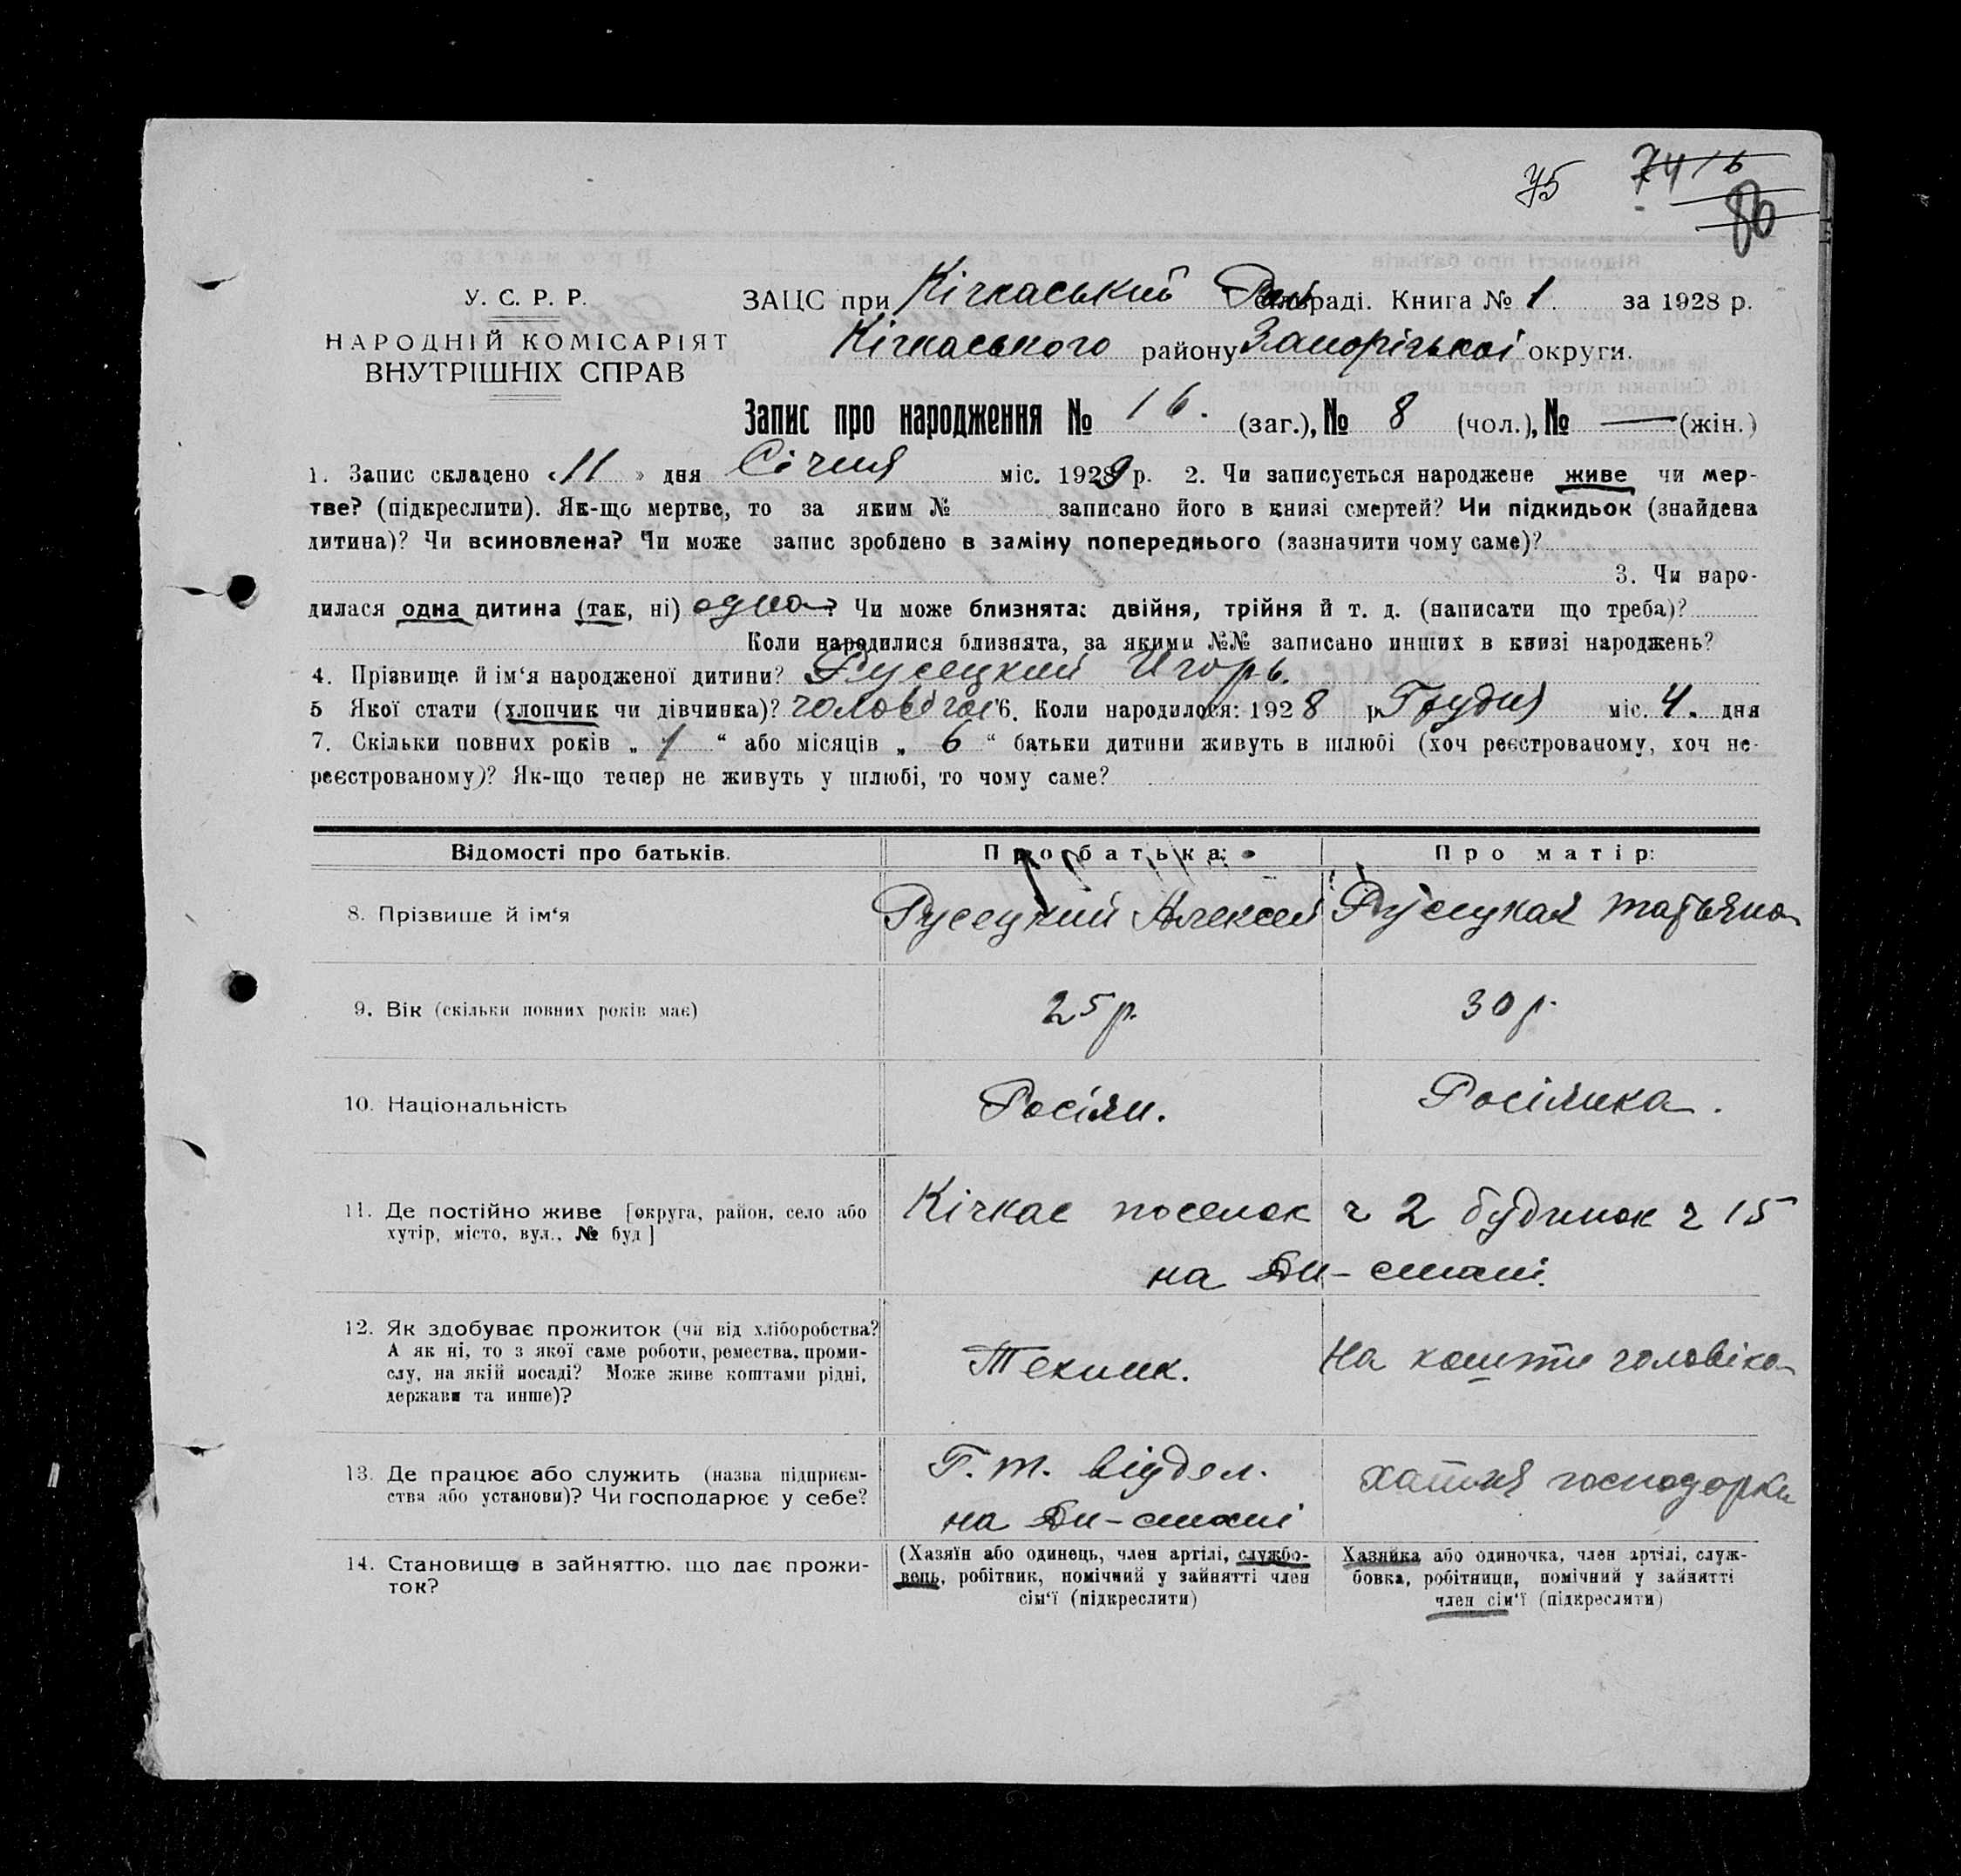 75 7416
86
У. С. Р. Р.
НАРОДНІЙ КОМІСАРІЯТ
ВНУТРІШНІХ СПРАВ
ЗАЦС при Кічкаський раді. Книга № 1 за 1928 р.
Кічкаського району Запорізькоі округи.
Запис про народження № 16. (заг.), № 8 (чол.), № — (жін.)
1. Запис складено «11» дня Січня міс. 1929 р. 2. Чи записується народжене живе чи мер-
тве? (підкреслити). Як-що мертве, то за яким № записано його в книзі смертей? Чи підкидьок (знайдена
дитина)? Чи всиновлена? Чи може запис зроблено в заміну попереднього (зазначити чому саме)?
3. Чи наро-
дилася одна дитина (так, ні) одна? Чи може близнята: двійня, трійня й т. д. (написати що треба)?
Коли народилися близнята, за якими №№ записано инших в книзі народжень?
4. Прізвище й ім‘я народженої дитини? Русецкий Игорь.
5 Якої стати (хлопчик чи дівчинка)? чоловічоі 6. Коли народилося: 1928 р Грудня міс. 4. дня
7. Скільки повних років „ 1 “ або місяців „ 6 “ батьки дитини живуть в шлюбі (хоч реєстрованому, хоч не-
реєстрованому)? Як-що тепер не живуть у шлюбі, то чому саме?
Відомості про батьків. Про батька: Про матір:
8. Прізвище й ім‘я Русецкий Алексей Русецкая Татьяна
9. Вік (скільки повних років має) 25 р. 30 р.
10. Національність Росіян. Росіянка.
11. Де постійно живе [округа, район, село або
хутір, місто, вул., № буд] Кічкас поселок ч 2 будинок ч 15
на Дн-стані.
12. Як здобуває прожиток (чи від хліборобства?
А як ні, то з якої саме роботи, ремества, проми-
слу, на якій посаді? Може живе коштами рідні,
держави та инше)? Техник. На кошти чоловіка
13. Де працює або служить (назва підприєм-
ства або установи)? Чи господарює у себе? Г. т. відділ.
на Дн-стані хатня господорка
14. Становище в зайняттю, що дає прожи-
ток?
(Хазяїн або одинець, член артілі, службо-
вець, робітник, помічний у зайнятті член
сім‘ї (підкреслити)
Хазяйка або одиночка, член артілі, служ-
бовка, робітниця, помічний у зайнятті
член сім‘ї (підкреслити)